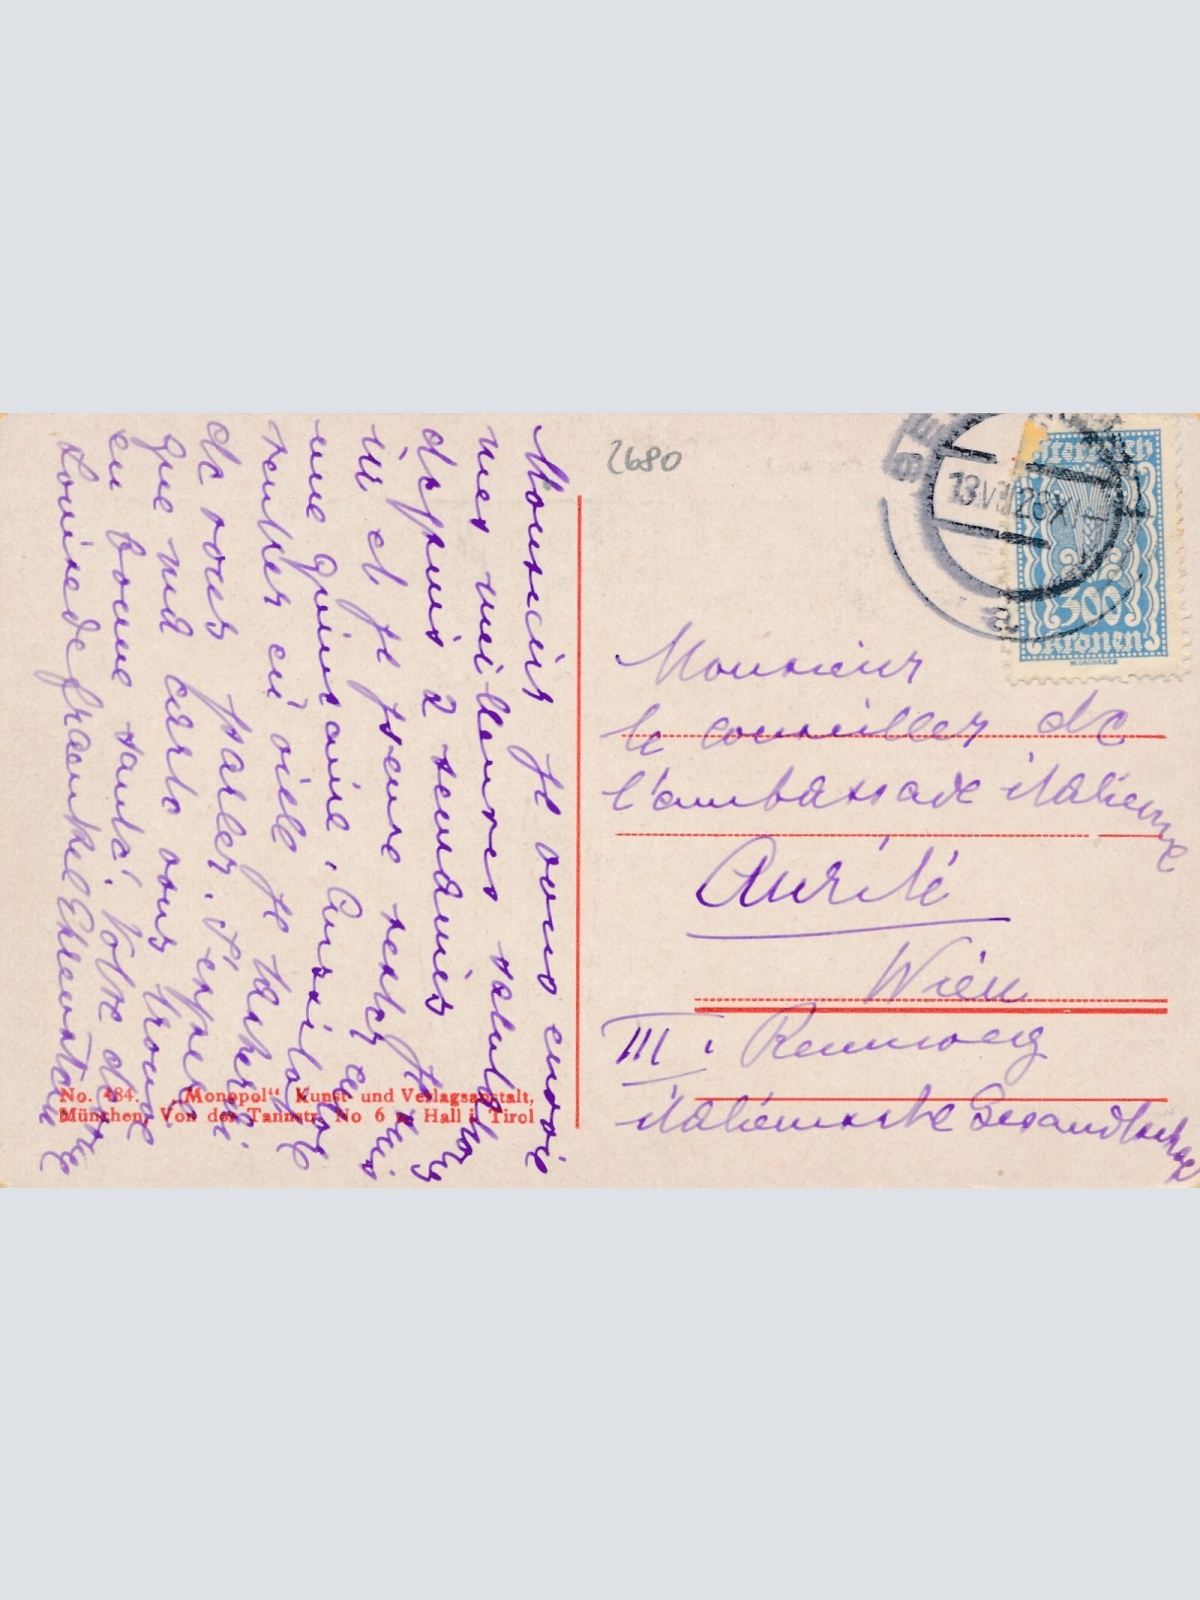 Monsieur je vous envoie
mes meilleures salutations
depuis 2 semaines je suis
ici et je pense rester encore
une quinzaine. Aussitôt
rentrée en ville je tâcherai
de vous parler. J'espère
que ma carte vous trouve
en bonne santé. Votre
Louise de Fraenkel Ehrenstein
No. 484. „Monopol“ Kunst und Verlagsanstalt,
München, Von der Tannstr. No 6 Hall i. Tirol
2680
Österreich
300
Kronen
W. DACHAUER
13.V
Monsieur
le conseiller de
l'ambassade italienne
Auriti
Wien
III. Rennweg
italienische Gesandtschaft